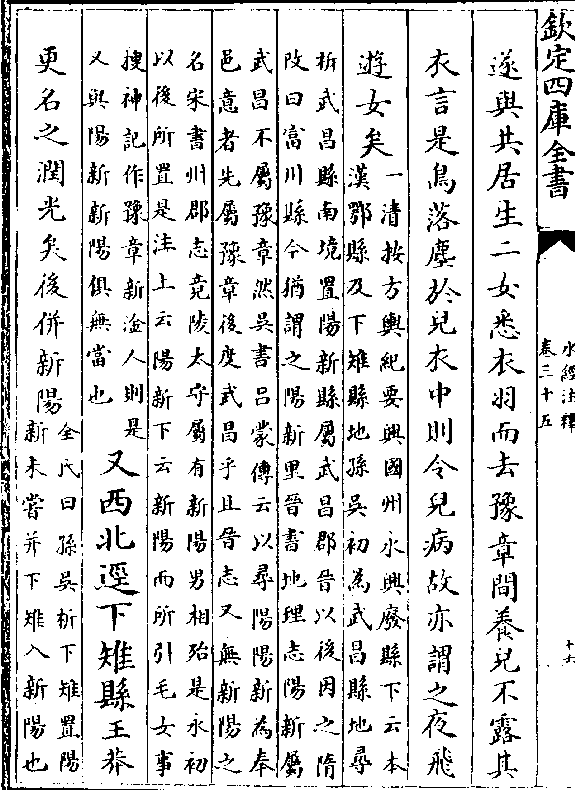 欽定四庫全書
水經注釋
卷三十五
十六
遂與共居生二女悉衣羽而去豫章間養兒不露其
衣言是鳥落塵於兒衣中則令兒病故亦謂之夜飛
遊女矣
一清按方輿紀要興國州永興廢縣下云本
漢鄂縣及下雉縣地孫吳初為武昌縣地尋
析武昌縣南境置陽新縣屬武昌郡晉以後因之隋
改曰富川縣今猶謂之陽新里晉書地理志陽新屬
武昌不屬豫章然吳書呂蒙傳云以尋陽陽新為奉
邑意者先屬豫章後度武昌乎且晉志又無新陽之
名宋書州郡志竟陵太守屬有新陽男相殆是永初
以後所置是注上云陽新下云新陽而所引毛女事
搜神記作豫章新淦人則是
又與陽新新陽俱無當也
又西北逕下雉縣王莽
更名之潤光矣後併新陽
全氏曰孫吳析下雉置陽
新未嘗并下雉入新陽也